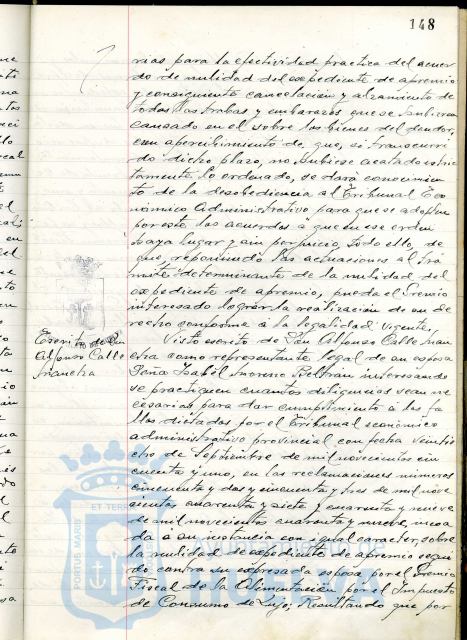 148
rias para la efectividad practica del acuer
do de nulidad del expediente de apremio
y consiguiente cancelación y alzamiento de
todas las trabas y embarazos que se hubieran
causado en el sobre los bienes del deudor,
con apercibimiento de, que, si transcurri
do dicho plazo, no hubiese acatado estric
tamente lo ordenado, se dará conocimien
to de la desobediencia al Tribunal Eco
nómico Administrativo, para que se adopten
por este los acuerdos a que en ese orden
haya lugar y sin perjuicio, todo ello, de
que, reponiendo las actuaciones al trá
mite determinante de la nulidad del
expediente de apremio, pueda el Gremio
interesado lograr la realización de su de
recho conforme a la legalidad vigente,
Escrito de Don
Alfonso Calle
Mancha
Visto escrito de Don Alfonso Calle Man
cha como representante legal de su esposa
Doña Isabel Moreno Beltran interesando
se practiquen cuantas diligencias sean ne
cesarias para dar cumplimiento a los fa
llos dictados por el Tribunal económico
administrativo provincial con fecha veinti
ocho de Septiembre de mil novecientos cin
cuenta y uno, en las reclamaciones números
cincuenta y dos y cincuenta y tres de mil nove
cientos cuarenta y siete y cuarenta y nueve
de mil novecientos cuarenta y nueve, incoa
da a su instancia con igual caracter, sobre
la nulidad de expediente de apremio segui
do contra su expresada esposa, por el Gremio
Fiscal de la Alimentación por el Impuesto
de Consumo de Lujo; Resultando que por
PORTUS MARIS ET TERRAE